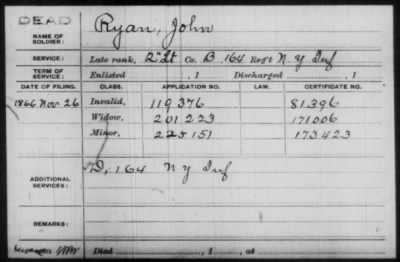 DEAD
NAME OF SOLDIER: Ryan, John
SERVICE: Late rank, 2" Lt Co. B, 164 Reg't N. Y Inf
TERM OF SERVICE: Enlisted , 1 Discharged , 1
DATE OF FILING. CLASS. APPLICATION NO. LAW. CERTIFICATE NO.
1866 Nov. 26 Invalid, 119376 81396
Widow, 201223 171006
Minor, 225151 173423
ADDITIONAL SERVICES: D, 164 N Y Inf
REMARKS:
Died , 1 , at